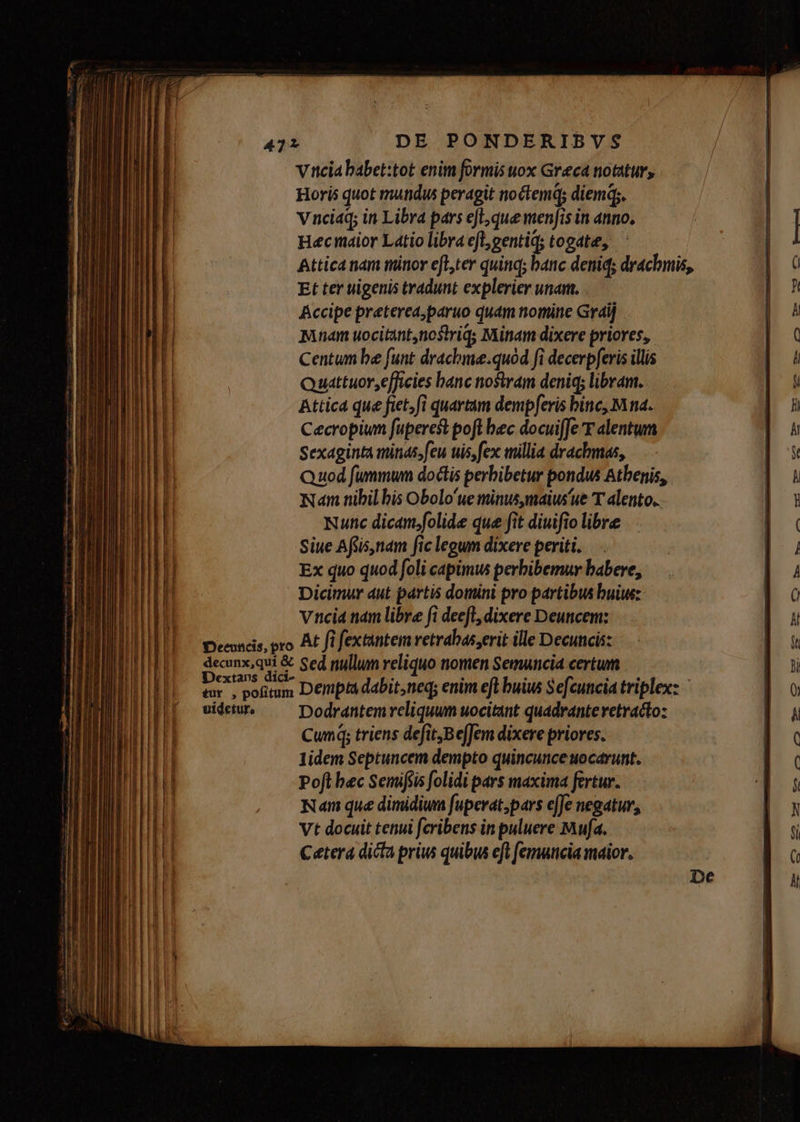 472 DE PONDERIBVS
Vncia habet:tot enim formis uox Græca notatur,
Horis quot mundus peragit noctemq́; diemq́;.
Vnciaq́; in Libra pars eſt,quæ menſis in anno.
Hæc maior Latio libra eſt,gentiq́; togatæ,
Attica nam minor eſt,ter quinq; hanc deniq; drachmis,
Et ter uigenis tradunt explerier unam.
Accipe præterea,paruo quam nomine Graij
Mnam uocitant,noſtriq́; Minam dixere priores,
Centum hæ ſunt drachmæ.quòd ſi decerpſeris illis
Quattuor,efficies hanc noſtram deniq; libram.
Attica quæ fiet,ſi quartam dempſeris hinc, Mna.
Cecropium ſupereſt poſt hæc docuiſſe Talentum
Sexaginta minas,ſeu uis,ſex millia drachmas,
Quod ſummum doctis perhibetur pondus Athenis,
Nam nihil his Obolo'ue minus,maius'ue Talento.
Nunc dicam,ſolidæ quæ ſit diuiſio libræ
Siue Aſsis,nam ſic legum dixere periti.
Ex quo quod ſoli capimus perhibemur habere,
Dicimur aut partis domini pro partibus huius:
Vncia nam libræ ſi deeſt, dixere Deuncem:
At ſi ſextantem retrahas,erit ille Decuncis:
Sed nullum reliquo nomen Semuncia certum
Dempta dabit,neq; enim eſt huius Seſcuncia triplex:
Dodrantem reliquum uocitant quadrante retracto:
Cumq́; triens deſit,Beſſem dixere priores.
Iidem Septuncem dempto quincunce uocarunt.
Poſt hæc Semiſsis ſolidi pars maxima fertur.
Nam quæ dimidium ſuperat,pars eſſe negatur,
Vt docuit tenui ſcribens in puluere Muſa.
Cætera dicta prius quibus eſt ſemuncia maior.
De
Decuncis, pro
decunx,qui &
Dextans dici-
tur , poſitum
uidetur.